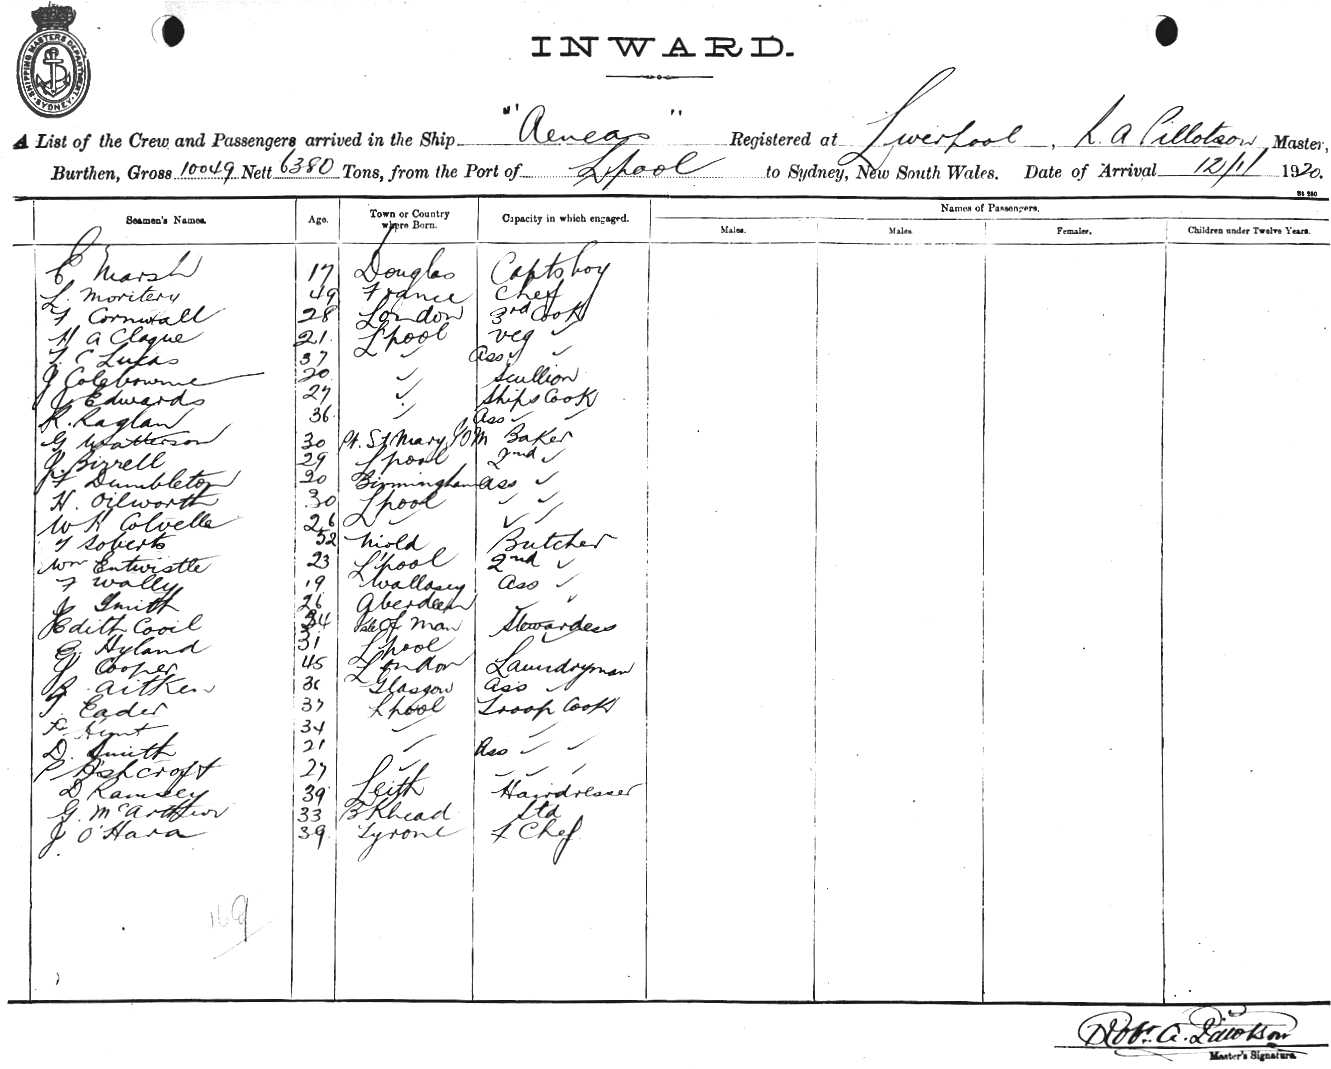 SHIPPING MASTERS DEPARTMENT SYDNEY
INWARD.
A List of the Crew and Passengers arrived in the Ship "Aeneas" Registered at Liverpool, R. A Tillotson, Master,
Burthen, Gross 10049 Nett 6380 Tons, from the Port of L'pool to Sydney, New South Wales. Date of Arrival 12/11 1920.
Seamen's Names. Age. Town or Country where Born. Capacity in which engaged. Names of Passengers.
Males. Males. Females. Children under Twelve Years.
C Marsh 17 Douglas Capts boy
L. Moritery 49 France Chef
F Cornwall 28 London 3rd Cook
H A Clague 21 L'pool Veg ✓
F. C Lucas 37 ✓ Ass ✓ ✓
J Colebourne 20 ✓ Scullion
J Edwards 27 ✓ Ships Cook
R. Raglan 36 ✓ Ass ✓ ✓
G Watterson 30 Pt. St Mary IOM Baker
J. Birrell 29 L'pool 2nd ✓
F Dumbleton 20 Birmingham Ass ✓
H. Dilworth 30 L'pool ✓ ✓
W H Colvelle 26 ✓ ✓ ✓
52 Mold Butcher
Wm Entwistle 23 L'pool 2nd ✓
F Wally 19 Wallasey Ass ✓
J Smith 26 Aberdeen ✓ ✓
Edith Cooil 34 Isle of Man Stewardess
E. Hyland 31 L'pool ✓
J Cooper 45 London Laundryman
R. Aitken 36 Glasgow Ass ✓
T. Eader 37 L'pool Troop Cook
Hunt 34 ✓
D. Smith 21 ✓ Ass ✓ ✓
P Ashcroft 27 ✓ ✓ ✓ ✓
D Ramsey 39 Leith Hairdresser
G. McArthur 33 B'Khead Std
J O'Hara 39 Tyrone F Chef
169
Robt. A. Tillotson
Master's Signature.